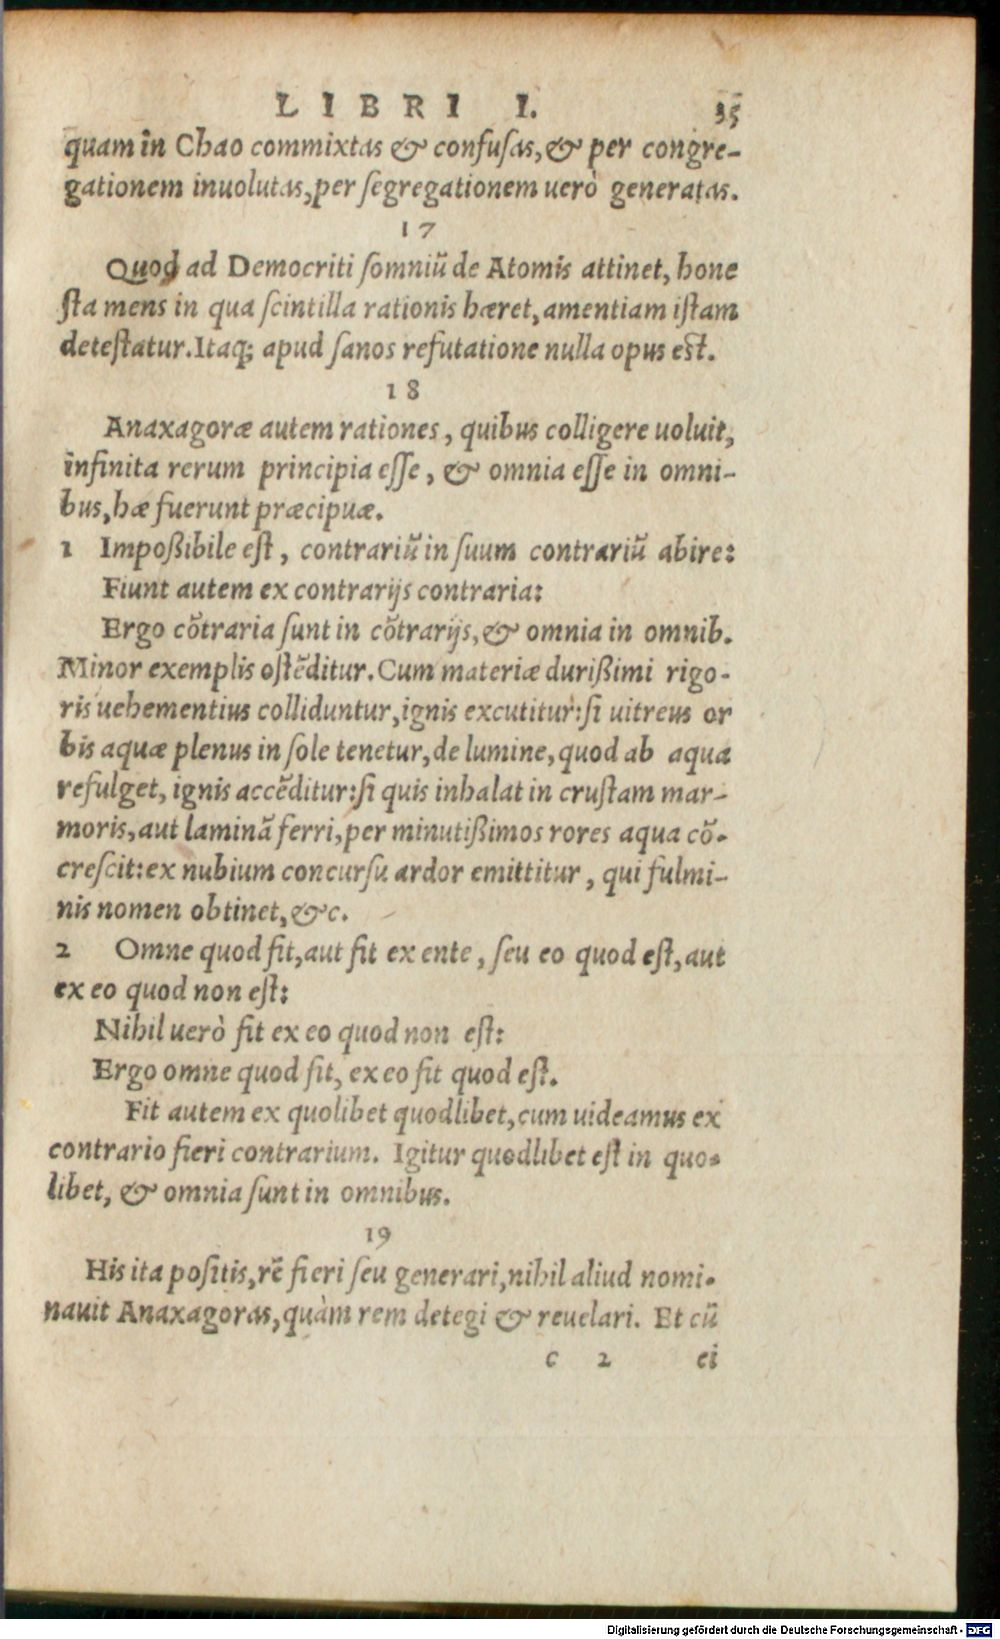 LIBRI I. 35
quam in Chao commixtas & confuſas, & per congre-
gationem inuolutas, per ſegregationem uerò generatas.
17
Quod ad Democriti ſomniũ de Atomis attinet, hone
ſta mens in qua ſcintilla rationis hæret, amentiam iſtam
deteſtatur. Itaq; apud ſanos refutatione nulla opus eſt.
18
Anaxagoræ autem rationes, quibus colligere uoluit,
infinita rerum principia eſſe, & omnia eſſe in omni-
bus, hæ fuerunt præcipuæ.
1 Impoßibile eſt, contrariũ in ſuum contrariũ abire:
Fiunt autem ex contrarijs contraria:
Ergo cõtraria ſunt in cõtrarijs, & omnia in omnib.
Minor exemplis oſtẽditur. Cum materiæ durißimi rigo-
ris uehementius colliduntur, ignis excutitur: ſi uitreus or
bis aquæ plenus in ſole tenetur, de lumine, quod ab aqua
refulget, ignis accẽditur: ſi quis inhalat in cruſtam mar-
moris, aut laminã ferri, per minutißimos rores aqua cõ-
creſcit: ex nubium concurſu ardor emittitur, qui fulmi-
nis nomen obtinet, &c.
2 Omne quod fit, aut fit ex ente, ſeu eo quod eſt, aut
ex eo quod non eſt:
Nihil uerò fit ex eo quod non eſt:
Ergo omne quod fit, ex eo fit quod eſt.
Fit autem ex quolibet quodlibet, cum uideamus ex
contrario fieri contrarium. Igitur quodlibet eſt in quo-
libet, & omnia ſunt in omnibus.
19
His ita poſitis, rẽ fieri ſeu generari, nihil aliud nomi-
nauit Anaxagoras, quàm rem detegi & reuelari. Et cũ
c 2 ei
Digitalisierung gefördert durch die Deutsche Forschungsgemeinschaft - DFG